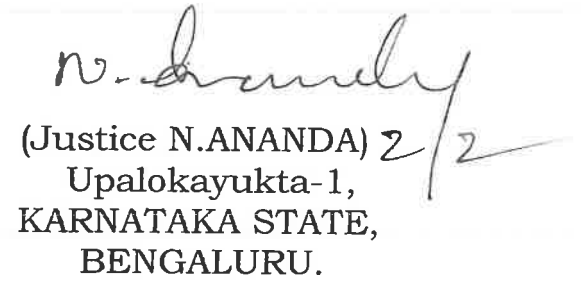 N. Ananda
(Justice N.ANANDA) 2/2
Upalokayukta-1,
KARNATAKA STATE,
BENGALURU.